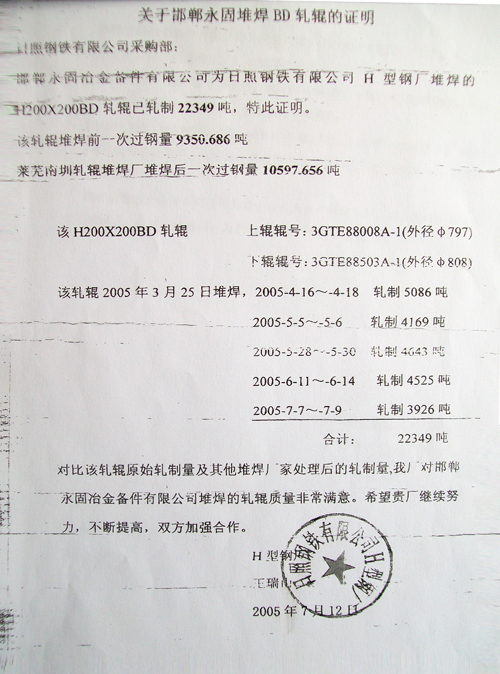 关于邯郸永固堆焊 BD 轧辊的证明
日照钢铁有限公司采购部：
邯郸永固冶金备件有限公司为日照钢铁有限公司 H 型钢厂堆焊的
H200X200BD 轧辊已轧制 22349 吨，特此证明。
该轧辊堆焊前一次过钢量 9350.686 吨
莱芜南圳轧辊堆焊厂堆焊后一次过钢量 10597.656 吨
该 H200X200BD 轧辊 上辊辊号：3GTE88008A-1(外径φ797)
下辊辊号：3GTE88503A-1(外径φ808)
该轧辊 2005 年 3 月 25 日堆焊，2005-4-16～-4-18 轧制 5086 吨
2005-5-5～-5-6 轧制 4169 吨
2005-5-28～-5-30 轧制 4643 吨
2005-6-11～-6-14 轧制 4525 吨
2005-7-7～-7-9 轧制 3926 吨
合计： 22349 吨
对比该轧辊原始轧制量及其他堆焊厂家处理后的轧制量，我厂对邯郸
永固冶金备件有限公司堆焊的轧辊质量非常满意。希望贵厂继续努
力，不断提高，双方加强合作。
H 型钢
王瑞
2005 年 7 月 12 日
日照钢铁有限公司H型钢厂